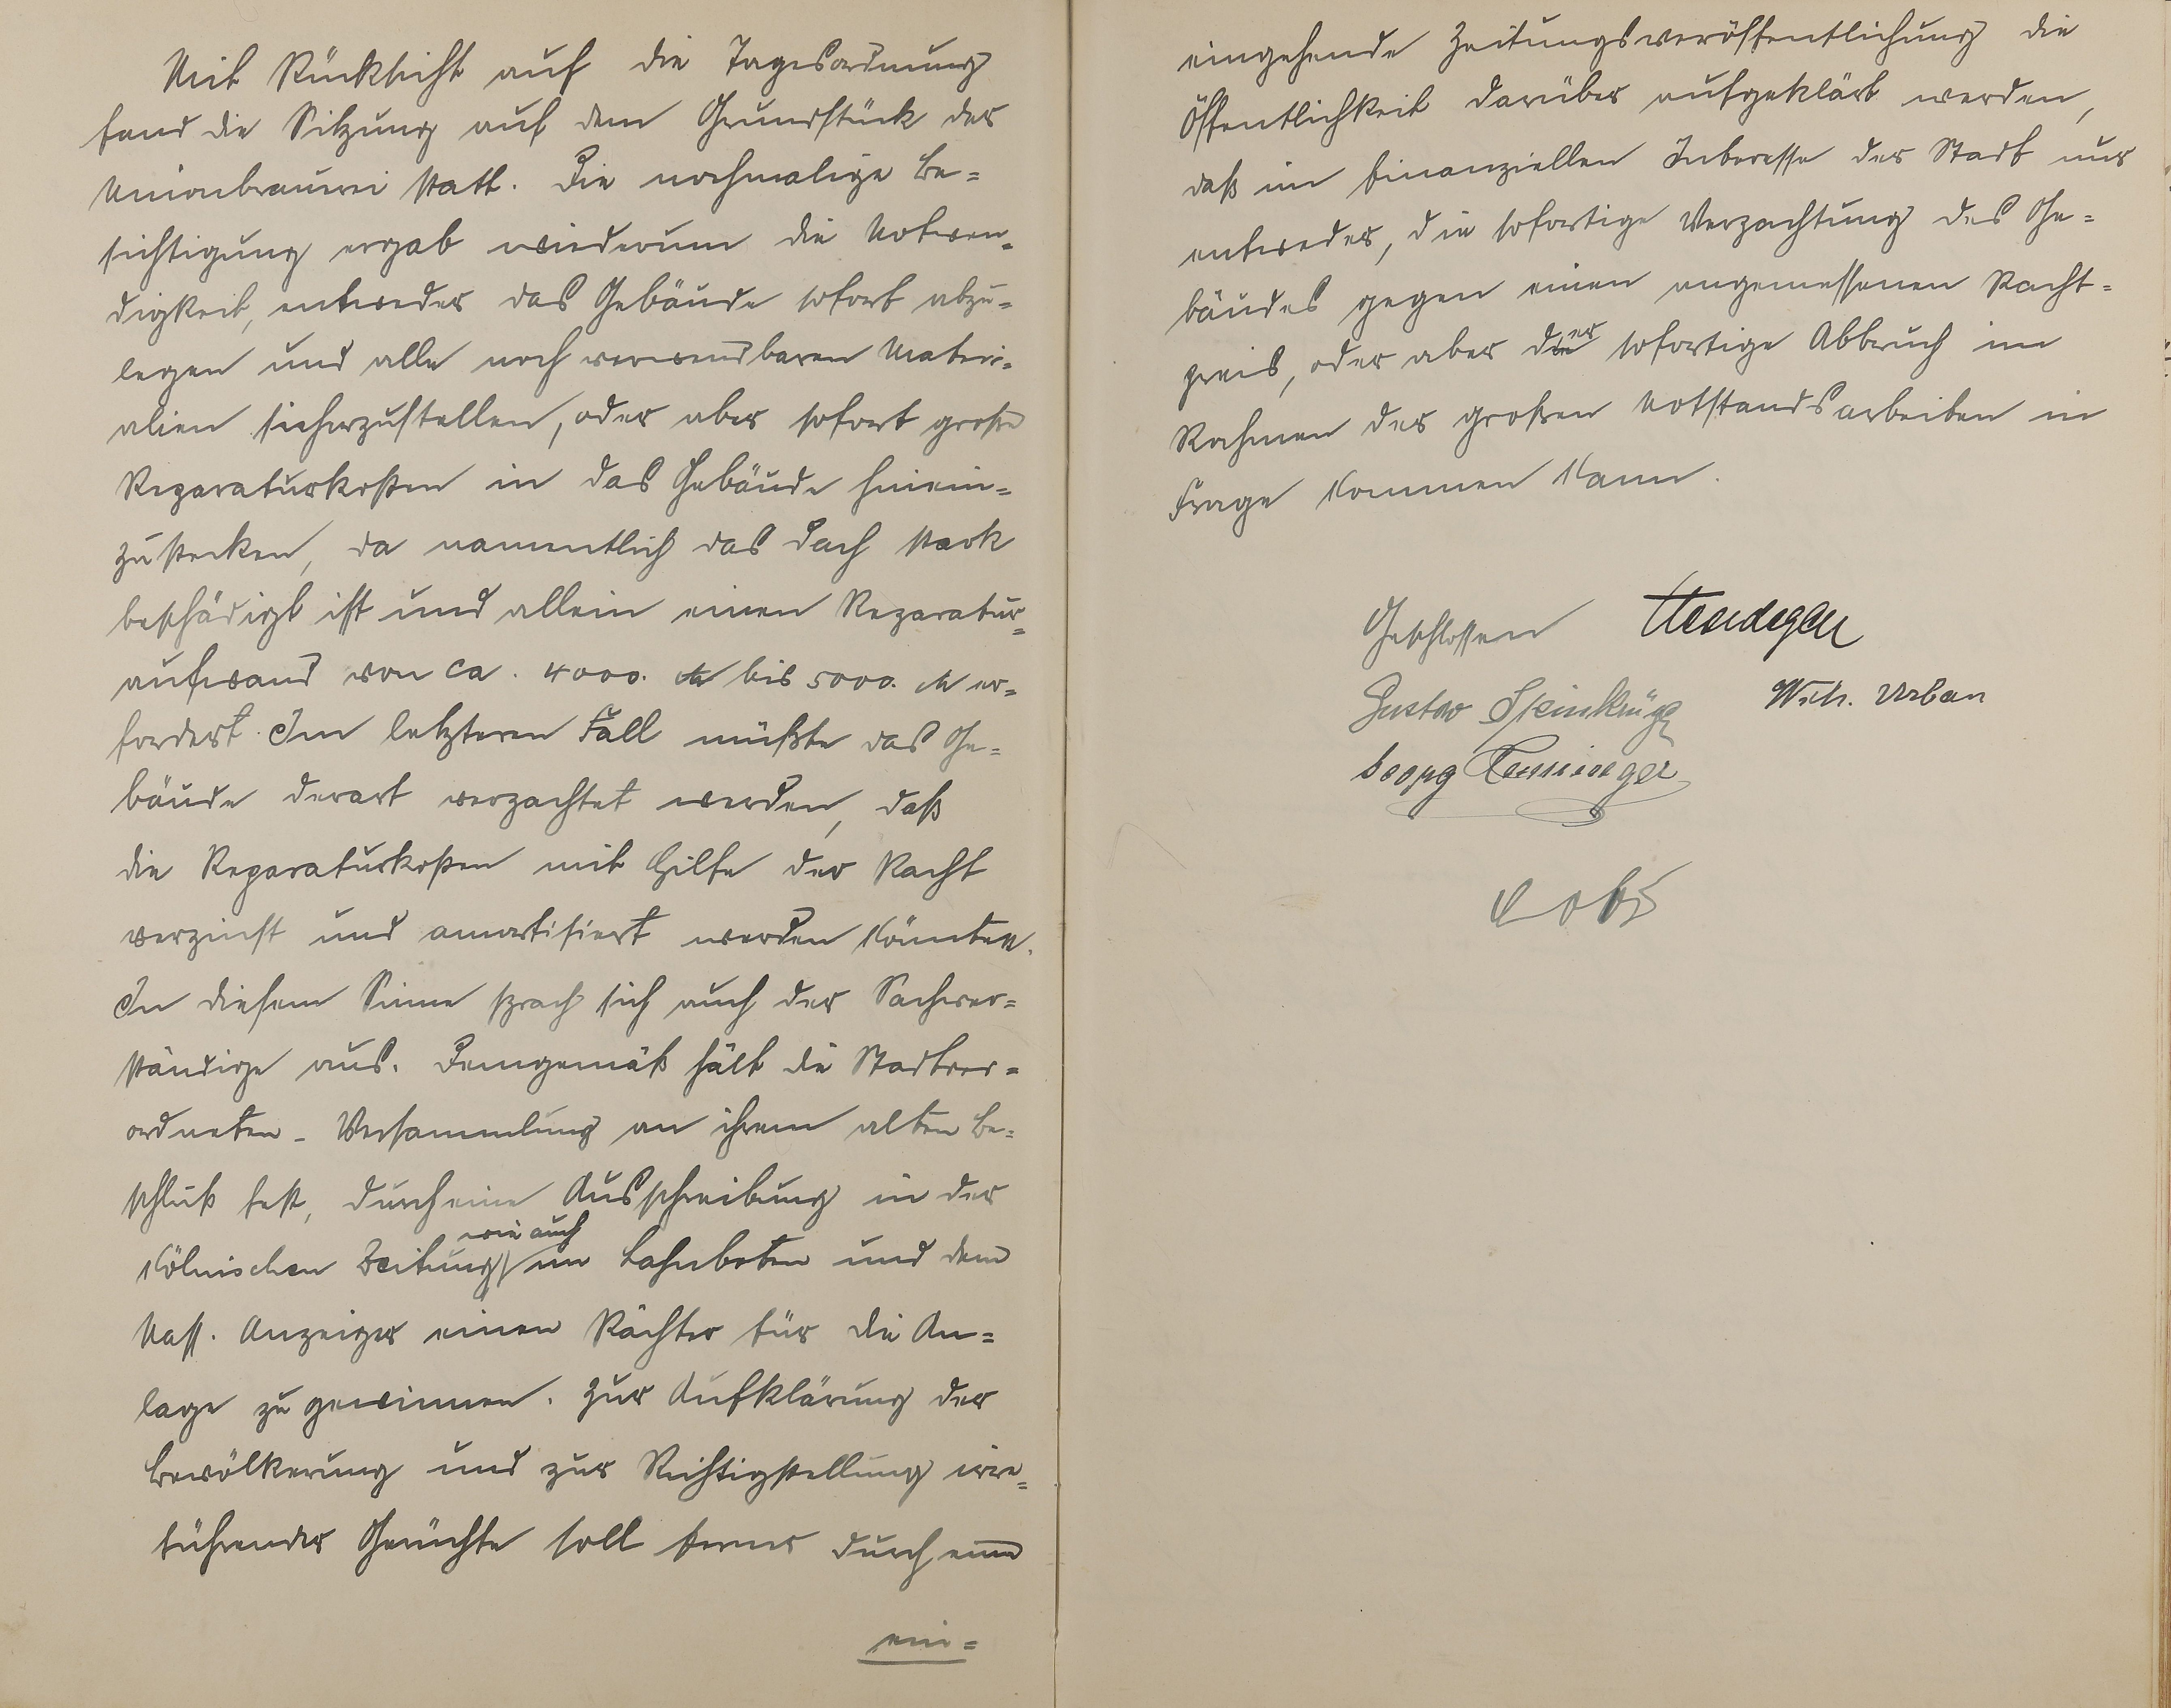 Mit Rücksicht auf die Tagesordnung
fand die Sitzung auf dem Grundstück der
Unionbrauerei statt. Die nochmalige Be=
sichtigung ergab wiederum die Notwen=
digkeit, entweder das Gebäude sofort abzu=
legen und alle noch verwendbaren Materi=
alien sicherzustellen, oder aber sofort große
Reparaturkosten in das Gebäude hinein=
zustecken, da namentlich das Dach stark
beschädigt ist und allein einen Reparatur=
aufwand von ca. 4000. M bis 5000. M er=
fordert. Im letzteren Fall müßte das Ge=
bäude derart verpachtet werden, daß
die Reparaturkosten mit Hilfe der Pacht
verzinst und amortisiert werden könnten.
In diesem Sinne sprach sich auch der Sachver=
ständige aus. Demgemäß hält die Stadtver=
ordneten-Versammlung an ihrem alten Be=
schluß fest, durch eine Ausschreibung in der
wie auch
Kölnischen Zeitung im Lahnboten und dem
Nass. Anzeiger einen Pächter für die An=
lage zu gewinnen. Zur Aufklärung der
Bevölkerung und zur Richtigstellung irre=
führender Gerüchte soll ferner durch eine
ein=
eingehende Zeitungsveröffentlichung die
Öffentlichkeit darüber aufgeklärt werden,
daß im finanziellen Interesse der Stadt nur
entweder, die sofortige Verpachtung des Ge=
bäudes gegen einen angemessenen Pacht=
preis, oder aber der sofortige Abbruch im
Rahmen der großen Notstandsarbeiten in
Frage kommen kann.
Geschlossen
Gustav Steinkrüger Wilh. Urban
Georg